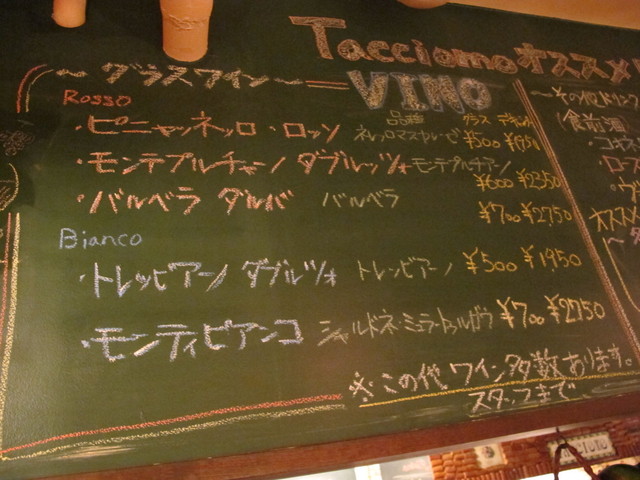 Tacciomo オススメ
VINO
～グラスワイン～
Rosso
品種 グラス デキャンタ
・ピニャッネッロ・ロッソ ネレッロマスカレーゼ ¥500 ¥1950
・モンテプルチャーノ ダブルッツォ モンテプルチアーノ ¥600 ¥2350
・バルベラ ダルバ バルベラ ¥700 ¥2750
Bianco
・トレッビアーノ ダブルツォ トレッビアーノ ¥500 ¥1,950
・モンティビアンコ シャルドネ・ミュラートゥルガウ ¥700 ¥2750
※この代ワイン多数あります。
スタッフまで
～その他ドリンク
(食前酒)
オススメ